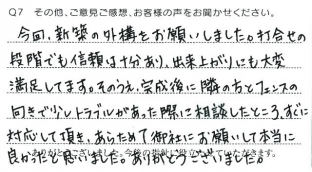 Q7 その他、ご意見ご感想、お客様の声をお聞かせください。
今回、新築の外構をお願いしました。打合せの
段階でも信頼は十分あり、出来上がりにも大変
満足してます。そのうえ、完成後に隣の方とフェンスの
向きで少しトラブルがあった際に相談したところ、すぐに
対応して頂き、あらためて御社にお願いして本当に
良かったと思いました。ありがとうございました。
ありがとうございました。今後の指針に役立たせていただきます。